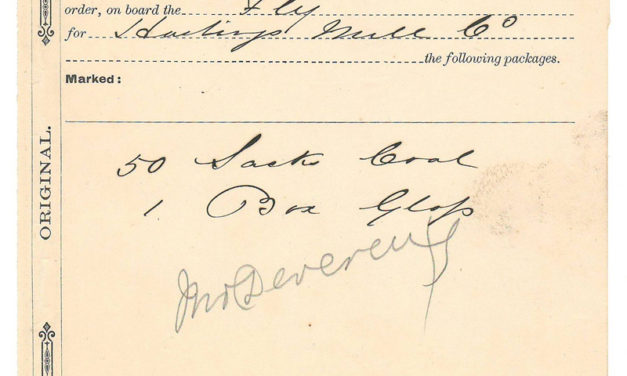 order, on board the Fly
for Hastings Mill Co
the following packages.
Marked:
ORIGINAL.
50 Sacks Coal
1. Box Glass